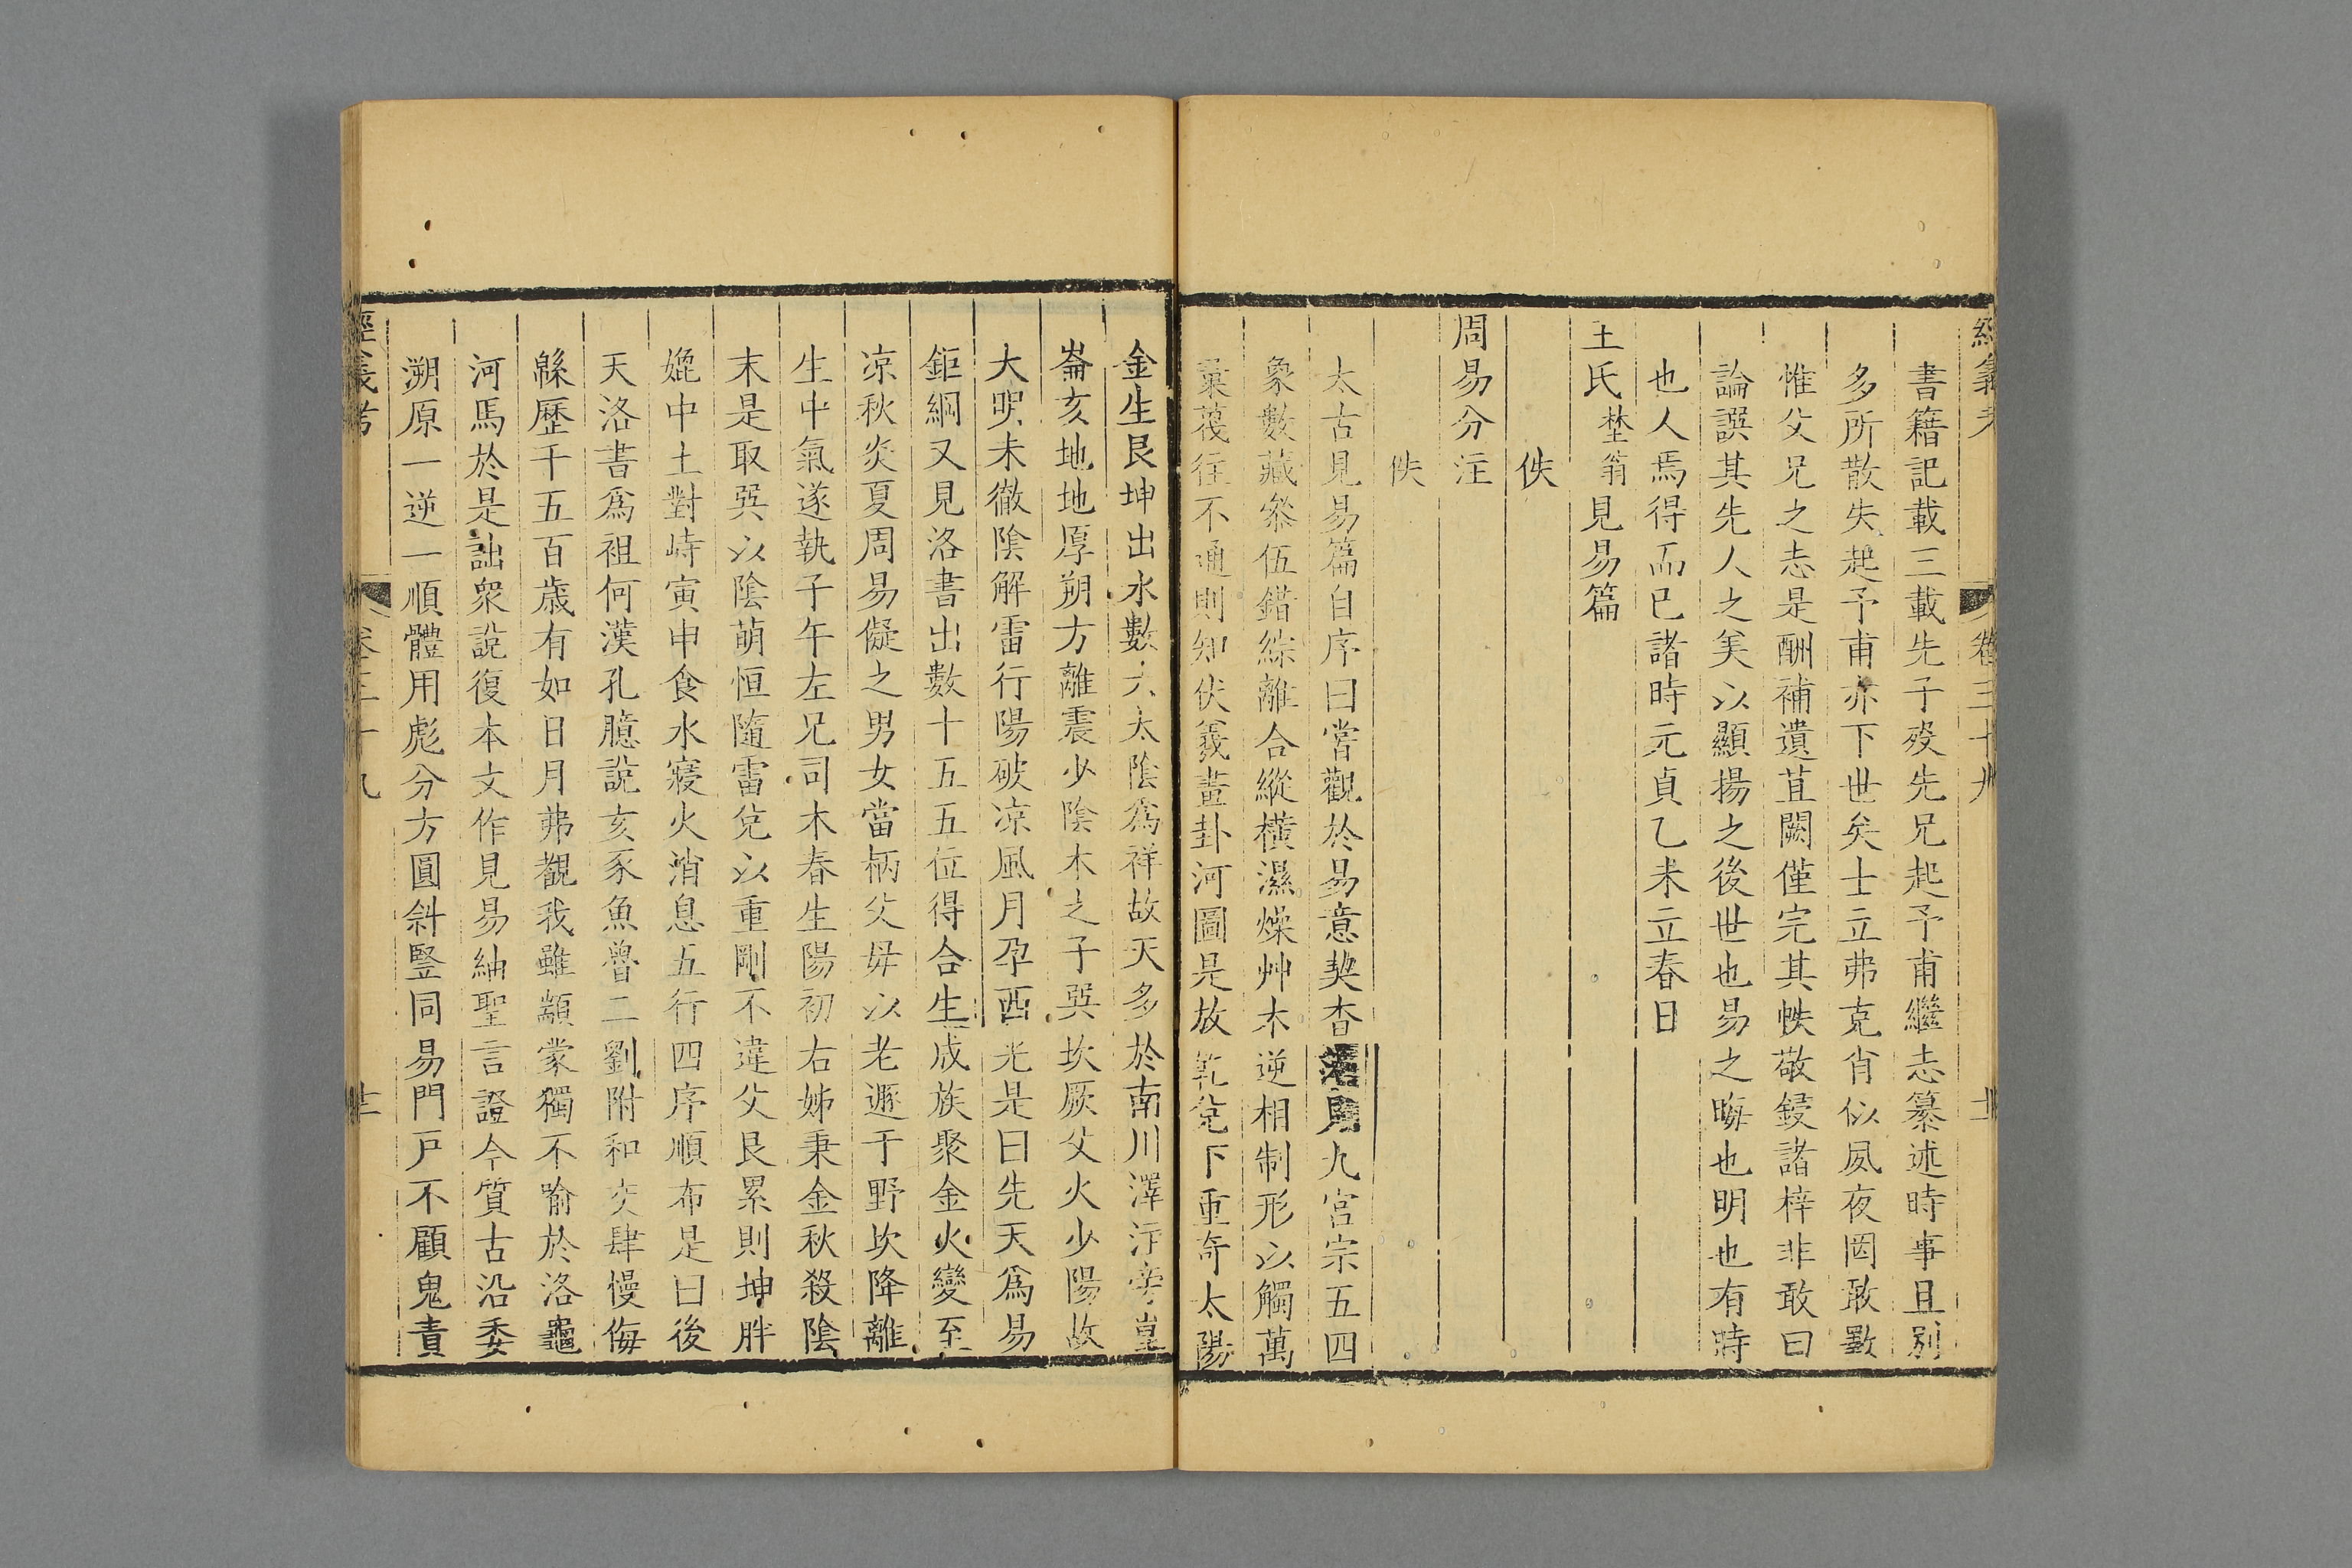 經義考 卷三十九 十一
書籍記載三載先子歿先兄起予甫繼志纂述時事且別
多所散失起予甫亦下世矣士立弗克肖似夙夜罔敢斁
惟父兄之志是酬補遺苴闕僅完其帙敬鋟諸梓非敢曰
論譔其先人之美以顯揚之後世也易之晦也明也有時
也人焉得而已諸時元貞乙未立春日
王氏埜翁見易篇
佚
周易分注
佚
太古見易篇自序曰嘗觀於易意契杳 九宮宗五四
象數藏叅伍錯綜離合縱橫濕燥艸木逆相制形以觸萬
彙葠往不通則知伏羲畫卦河圖是故乾兌下重奇太陽
金生艮坤出水數六太陰為祥故天多於南川澤汙旁崑
崙亥地地厚朔方離震少陰木之子巽坎厥父火少陽故
大明未徹陰解雷行陽破凉風月孕西光是曰先天為易
鉅綱又見洛書出數十五五位得合生成族聚金火變至
凉秋炎夏周易儗之男女當柄父毋以老遯于野坎降離
生中氣遂執子午左兄司木春生陽初右姊秉金秋殺陰
末是取巽以陰萌恒隨雷兌以重剛不違父艮累則坤胖
㛯中土對峙寅申食水寢火消息五行四序順布是曰後
天洛書爲祖何漢孔臆說亥豕魚魯二劉附和交肆慢侮
緜歷千五百歲有如日月弗觀我雖顓蒙獨不喻於洛龜
河馬於是詘衆說復本文作見易紬聖言證今質古沿委
溯原一逆一順體用彪分方圓斜竪同易門戸不顧鬼責
經義考 卷三十九 十二